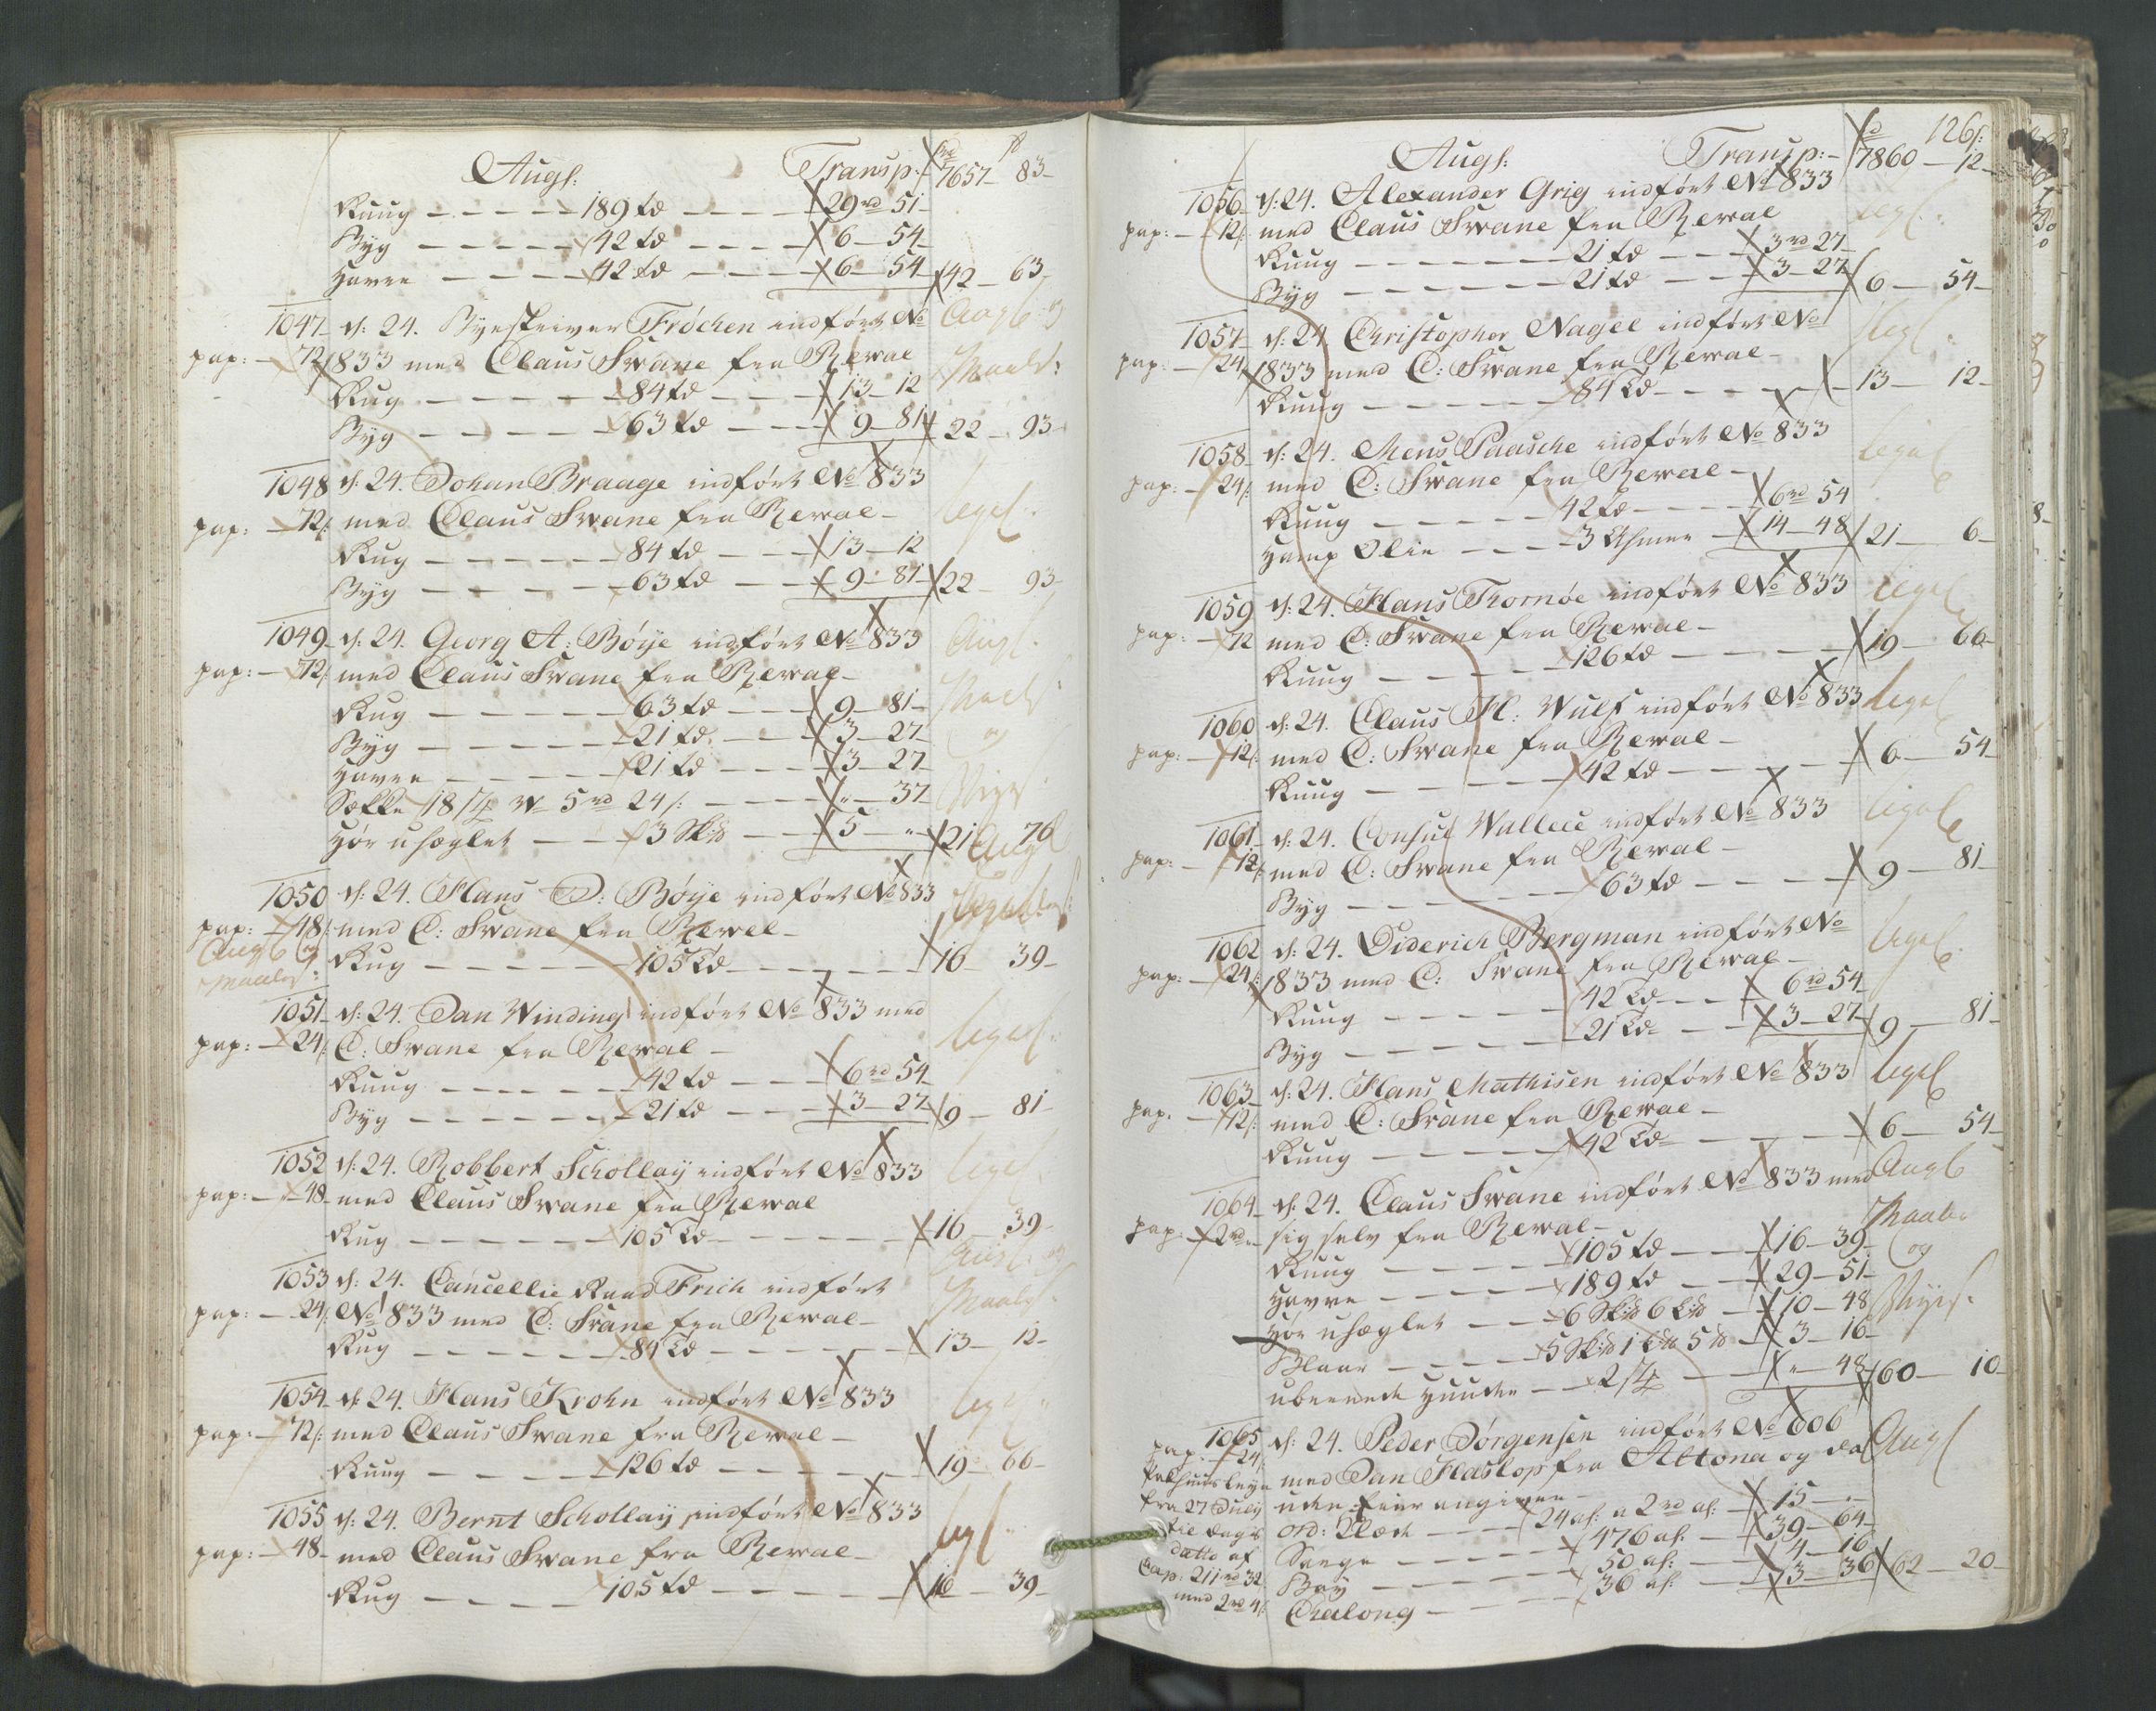 Augs: Transp:- rd 7657 - ß 83-
Ruug - - - - - 189 td - - - - 29 rd 51-
Byg - - - - - 42 td - - - - 6 - 54-
Havre - - - - 42 td - - - - 6 - 54 - 42 - 63-
1047- d: 24. Byeskriver Fröchen indført No
pap: - 72 833 med Claus Swane fra Rewal
Rug - - - - - 84 td - - - 13 - 12
Byg - - - - - 63 td - - - 9 - 81 - 22 - 93-
1048 d: 24. Johan Braage indført No 833
pap: - 72/: med Claus Swane fra Rewal- ligel.
Rug - - - - - 84 td - - - 13 - 12
Byg - - - - - 63 td - - - 9 - 81 - 22 - 93-
1049- d: 24. Georg A: Böije indført No 833
pap: - 72/: med Claus Swane fra Rewal-
Rug - - - - - 63 td - - - 9 - 81-
Byg - - - - - 21 td - - - 3 - 27-
Havre - - - - 21 td - - - 3 - 27-
Sække 18 5 rd 24/: - - - " - 37
Hör uhæglet - - - 3 Sk℔ - - 5 - " - 21 - 76
1050 d: 24. Hans D: Böije indført No 833
pap: - 48/: med C: Swane fra Rewel-
Rug - - - - - 105 td - - - - - 16 - 39-
1051- d: 24. Dan Winding indført No 833 med
pap: - 24/: C: Swane fra Rewal- ligel.
Ruug - - - - - 42 td - - - 6 rd 54-
Byg - - - - - 21 td - - - 3 - 27 - 9 - 81-
1052 d: 24. Robbert Schollaÿ indført No 833 ligel.
pap: - 48- med Claus Swane fra Rewal
Rug - - - - - 105 td - - - - - 16 - 39-
1053 d: 24. Cancellie Raad Frich indført
pap: - 24/: No 833 med C: Swane fra Rewal-
Rug - - - - - 84 td - - - - - 13 - 12-
1054- d: 24. Hans Krohn indført No 833 ligel.
pap: - 72/: med Claus Swane fra Rewal-
Ruug - - - - - 126 td - - - - - 19 - 66-
1055 d: 24. Bernt Schollaÿ indført No 833 ligl
pap: - 48- med Claus Swane fra Rewal-
Rug - - - - - 105 td - - - - - 16 - 39-
126/:
Augs: Transp:- rd 7860 - 12-
1056- d: 24. Alexander Grig indført No 833
pap: - 12/: med Claus Swane fra Rewal ligl.
Ruug - - - - - 21 td - - - 3 rd 27-
Byg - - - - - 21 td - - - 3 - 27 - 6 - 54-
1057- d: 24 Christopher Nagel indført No ligl.
pap: - 24/: 833 med C: Swane fra Rewal-
Ruug - - - - - 84 td - - - - 13 - 12-
1058- d: 24. Mens Paasche indført No 833 ligel
pap: - 24/: med C: Swane fra Rewal-
Ruug - - - - - 42 td - - - 6 rd 54
Hamp Olie - - - 3 Ahmer - 14 - 48 - 21 - 6-
1059 d: 24. Hans Thornöe indført No 833 ligel
pap: - 72 med C: Swane fra Rewal-
Ruug - - - - - 126 td - - - - 19 - 66-
1060 d: 24. Claus H: Wulf indført No 833 ligel
pap: - 12/: med C: Swane fra Rewal-
Ruug - - - - - 42 td - - - - 6 - 54-
1061- d: 24. Consul Wallece indført No 833 ligel
pap: - 12/: med C: Swane fra Rewal-
Byg - - - - - 63 td - - - - 9 - 81-
1062 d: 24. Diderich Bergman indført No ligel.
pap: - 24/: 833 med C: Swane fra Rewal-
Ruug - - - - - 42 td - - - 6 rd 54-
Byg - - - - - 21 td - - - 3 - 27 - 9 - 81-
1063- d: 24. Hans Mathisen indført No 833 ligel
pap. - 12/: med C: Swane fra Rewal-
Ruug - - - - - 42 td - - - - 6 - 54-
1064- d: 24. Claus Swane indført No 833 med
pap: - 2 rd - sig selv fra Rewal-
Ruug - - - - - 105 td - - - 16 - 39-
Havre - - - - 189 td - - - 29 - 51- og
Hör uhæglet - - 6 Sk℔ 6 L℔ - 10 - 48
Blaar - - - - 5 Sk℔ 1 L℔ 5 ℔ - 3 - 16-
uberedte Huuder - - - - " - 48 - 60 - 10-
1065 d: 24. Peder Jörgensen indført No 606
pap - 24/: med Jan Haskop fra Altona og da
Pakhuusleye uden feier angiven-
fra 27 July ord: Klæde - - - 24 al: a 2 rd al: - 15 - "-
til dags Sarge - - - - - 476 al: - 39 - 64-
dato af Boy - - - - - 50 al: - 4 - 16-
Cap: 211 rd 32 Chalong - - - 36 al: - 3 - 36 - 62 - 20-
med 2 rd 4/: